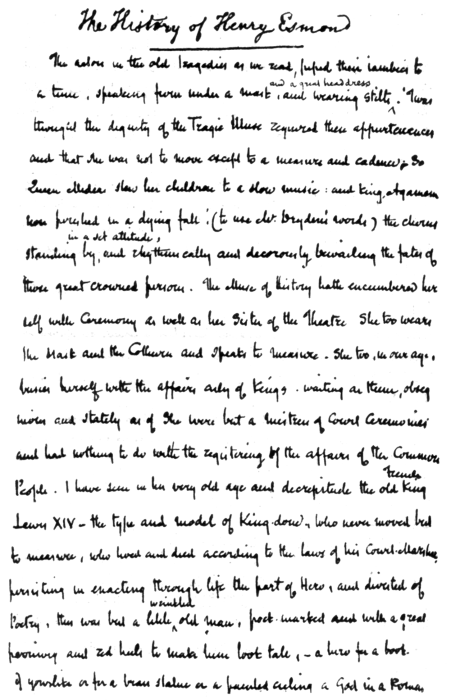 The History of Henry Esmond
The actors in the old Tragedies as we read, piped their iambics to
and a great headdress
a tune, speaking from under a mask, and wearing stilts. 'Twas
thought the dignity of the Tragic Muse required these appurtenances
and that she was not to move except to a measure and cadence. So
Queen Medea slew her children to a slow music: and King Agamem
non perished in a dying fall: (to use Mr. Dryden's words) the chorus
in a set attitude,
standing by, and rhythmically and decorously bewailing the fates of
those great crowned persons. The Muse of History hath encumbered her
self with Ceremony as well as her Sister of the Theatre She too wears
the Mask and the Cothurn and speaks to measure. She too, in our age,
busies herself with the affairs only of Kings. waiting on them, obseq
uious and stately as if she were but a Mistress of Court Ceremonies
and had nothing to do with the registering of the affairs of the Common
French
People. I have seen in his very old age and decrepitude the old King
Lewis XIV - the type and model of King-dom, who never moved but
to measure, who lived and died according to the laws of his Court-Marshal,
persisting in enacting through life the part of Hero, and divested of
wrinkled
Poetry, this was but a little old man, pock-marked and with a great
periwig and red heels to make him look tall, - a hero for a book
if you like or for a brass statue or a painted ceiling a God in a Roman